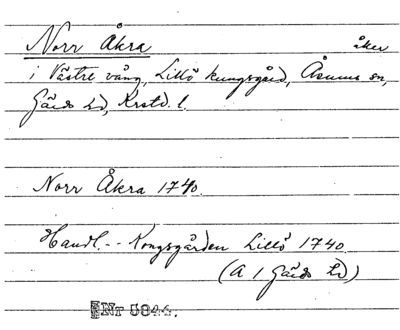 Norr Åkra åker
i Västre vång, Lillö kungsgård, Åsums sn,
Gärds hd, Krstd. l.
Norr Åkra 1740.
Handl. -- Kongsgården Lillö 1740.
(A 1 Gärds hd)
Nr 5844.